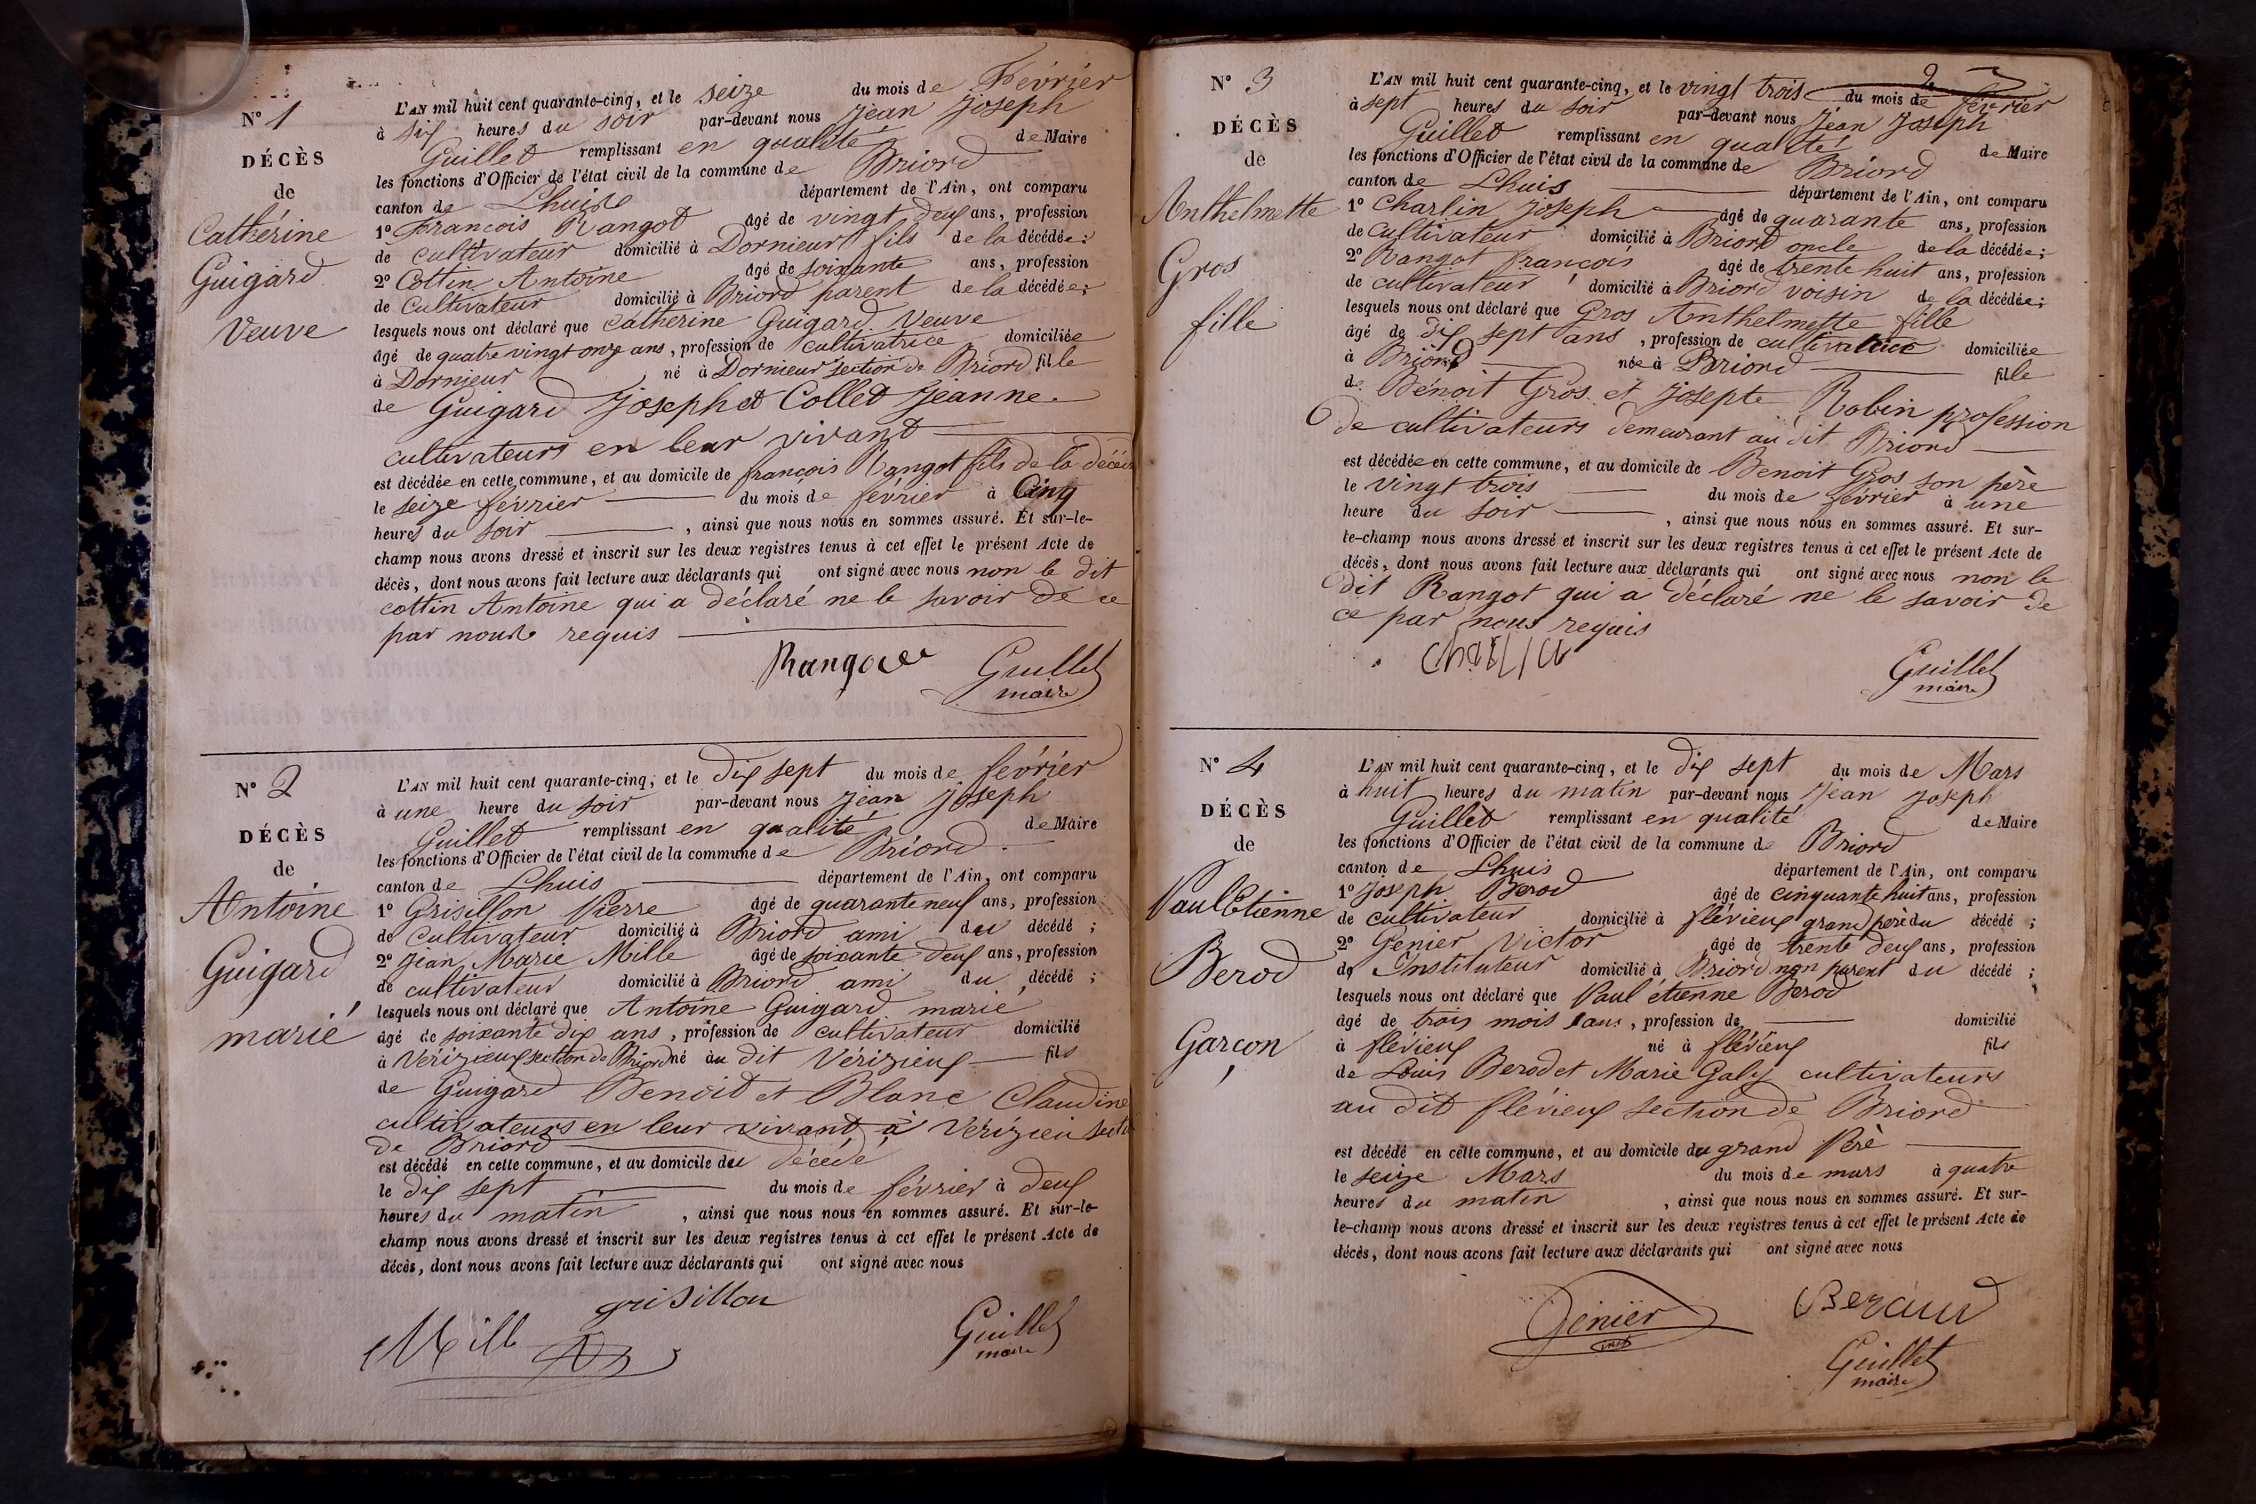 N° 1
DÉCÈS
de
Cathérine
Guigard
Veuve
L'AN mil huit cent quarante-cinq, et le seize du mois de Février
à six heures du soir par-devant nous Jean Joseph
Guillet remplissant en qualité de Maire
les fonctions d'Officier de l'état civil de la commune de Briord
canton de Lhuis département de l'Ain, ont comparu
1° Francois Rangot âgé de vingt deux ans, profession
de cultivateur domicilié à Dornieur fils de la décédée;
2° Cottin Antoine âgé de soixante ans, profession
de Cultivateur domicilié à Briord parent de la décédée;
lesquels nous ont déclaré que Catherine Guigard Veuve
âgé de quatre vingt onze ans, profession de cultivatrice domiciliée
à Dornieur né à Dornieur section de Briord fille
de Guigard Joseph et Collet Jeanne
cultivateurs en leur vivant
est décédée en cette commune, et au domicile de françois Rangot fils de la décéd
le seize février du mois de février à Cinq
heures du soir, ainsi que nous nous en sommes assuré. Et sur-le-
champ nous avons dressé et inscrit sur les deux registres tenus à cet effet le présent Acte de
décès, dont nous avons fait lecture aux déclarants qui ont signé avec nous non le dit
cottin Antoine qui a déclaré ne le savoir de ce
par nous requis
Guillet
maire
N° 2
DÉCÈS
de
Antoine
Guigard
marié
L'AN mil huit cent quarante-cinq, et le dix sept du mois de février
à une heure du soir par-devant nous Jean Joseph
Guillet remplissant en qualité de Maire
les fonctions d'Officier de l'état civil de la commune de Briord
canton de Lhuis département de l'Ain, ont comparu
1° Grisillon Pierre âgé de quarante neuf ans, profession
de Cultivateur domicilié à Briord ami du décédé;
2° Jean Marie Mille âgé de soixante deux ans, profession
de cultivateur domicilié à Briord ami du décédé;
lesquels nous ont déclaré que Antoine Guigard marié
âgé de soixante dix ans, profession de cultivateur domicilié
à Vérizieux section de Briord né au dit Verizieux fils
de Guigard Benoit et Blanc Claudine
cultivateurs en leur vivant à Vérizieu secti
de Briord
est décédé en cette commune, et au domicile du décédé
le dix sept du mois de février à deux
heures du matin, ainsi que nous nous en sommes assuré. Et sur-le-
champ nous avons dressé et inscrit sur les deux registres tenus à cet effet le présent Acte de
décès, dont nous avons fait lecture aux déclarants qui ont signé avec nous
grisillon
Mille
Guillet
maire
2
N° 3
DÉCÈS
de
Anthelmette
Gros
fille
L'AN mil huit cent quarante-cinq, et le vingt trois du mois de février
à sept heures du soir par-devant nous Jean Joseph
Guillet remplissant en qualité de Maire
les fonctions d'Officier de l'état civil de la commune de Briord
canton de Lhuis département de l'Ain, ont comparu
1° Charlin Joseph âgé de quarante ans, profession
de Cultivateur domicilié à Briord oncle de la décédée;
2° Rangot françois âgé de trente huit ans, profession
de cultivateur domicilié à Briord voisin de la décédée;
lesquels nous ont déclaré que Gros Anthelmette fille
âgé de dix sept ans, profession de cultivatrice domiciliée
à Briord née à Briord fille
de Bénoit Gros et Josepte Robin profession
de cultivateurs demeurant au dit Briord
est décédée en cette commune, et au domicile de Benoit Gros son père
le vingt trois du mois de février à une
heure du soir, ainsi que nous nous en sommes assuré. Et sur-
le-champ nous avons dressé et inscrit sur les deux registres tenus à cet effet le présent Acte de
décès, dont nous avons fait lecture aux déclarants qui ont signé avec nous non le
dit Rangot qui a déclaré ne le savoir de
ce par nous requis
Guillet
maire
N° 4
DÉCÈS
de
Paul Etienne
Berod
Garçon
L'AN mil huit cent quarante-cinq, et le dix sept du mois de Mars
à huit heures du matin par-devant nous Jean Joseph
Guillet remplissant en qualité de Maire
les fonctions d'Officier de l'état civil de la commune de Briord
canton de Lhuis département de l'Ain, ont comparu
1° Joseph Berod âgé de cinquante huit ans, profession
de cultivateur domicilié à flévieux grand pere du décédé;
2° Genier Victor âgé de trente deux ans, profession
de Instituteur domicilié à Briord non parent du décédé;
lesquels nous ont déclaré que Paul étienne Berod
âgé de trois mois ans, profession de domicilié
à flévieux né à flévieux fils
de Louis Berod et Marie Galy cultivateurs
au dit flévieux section de Briord
est décédé en cette commune, et au domicile du grand Père
le seize Mars du mois de mars à quatre
heures du matin, ainsi que nous nous en sommes assuré. Et sur-
le-champ nous avons dressé et inscrit sur les deux registres tenus à cet effet le présent Acte de
décès, dont nous avons fait lecture aux déclarants qui ont signé avec nous
Génier
Beraud
Guillet
maire